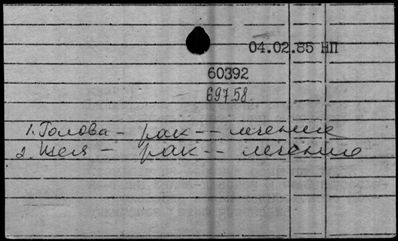 04.02.85 НП
60392
69758
1. Голова - рак -- лечение
2. Шея - рак -- лечение